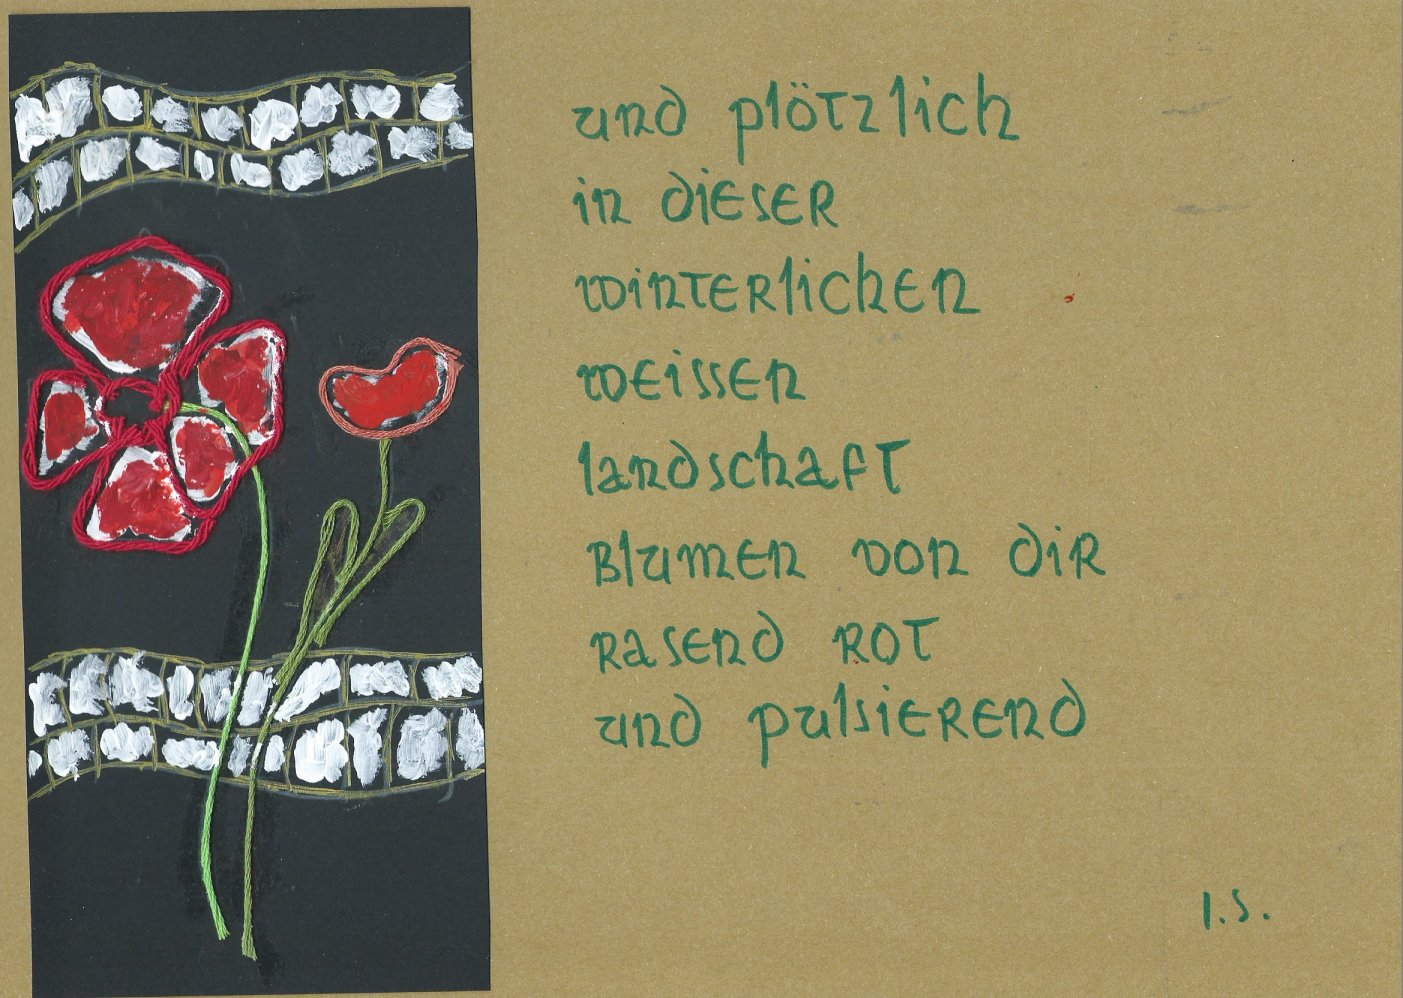 und plötzlich
in dieser
winterlichen
weissen
landschaft
Blumen von dir
rasend rot
und pulsierend
I.S.